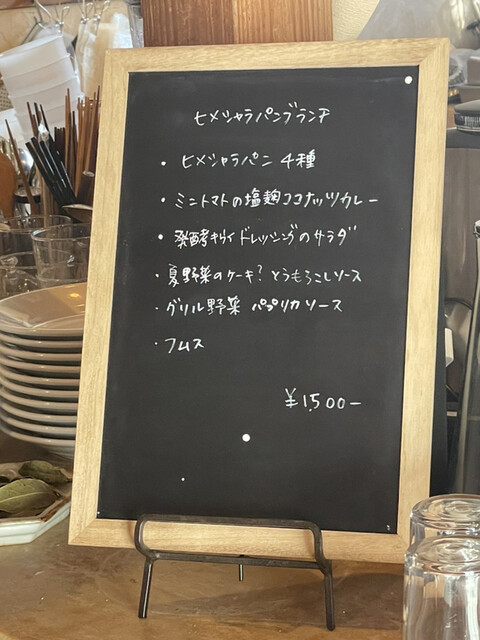 ヒメシャラパンブランチ
・ヒメシャラパン 4種
・ミニトマトの塩麹ココナッツカレー
・発酵キウイドレッシングのサラダ
・夏野菜のケーキ? とうもろこしソース
・グリル野菜 パプリカソース
・フムス
¥1,500-